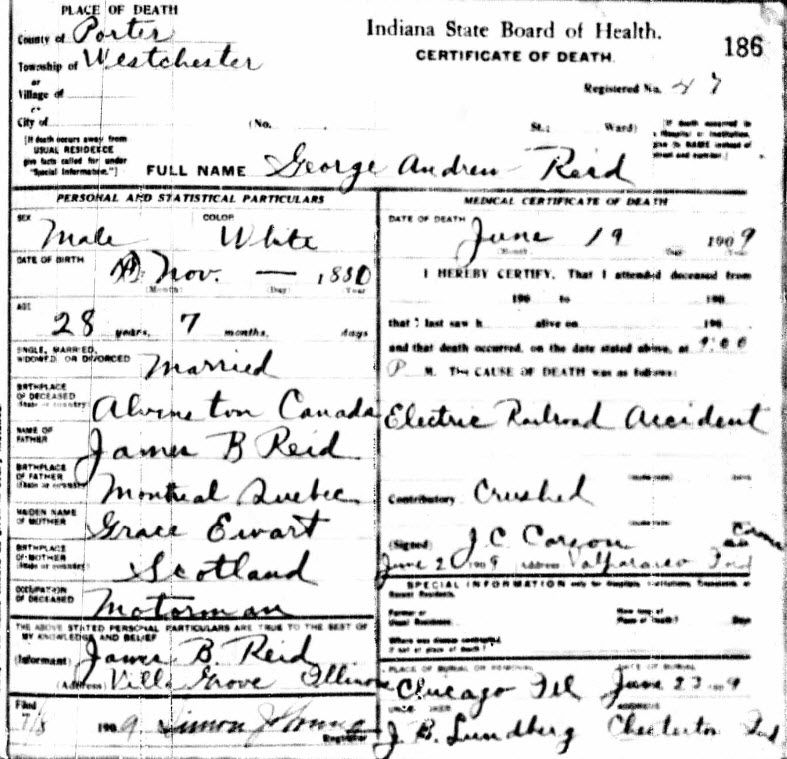 PLACE OF DEATH
County of Porter
Township of Westchester
or
Village of
or
City of
Indiana State Board of Health.
CERTIFICATE OF DEATH.
186
Registered No. 47
(No. St.; Ward)
[If death occurs away from
USUAL RESIDENCE
give facts called for under
"Special Information."]
[If death occurred in
a Hospital or Institution,
give its NAME instead of
street and number.]
FULL NAME George Andrew Reid
PERSONAL AND STATISTICAL PARTICULARS
SEX Male
COLOR White
DATE OF BIRTH Nov. — 1880
(Month) (Day) (Year)
AGE
28 years, 7 months, days
SINGLE, MARRIED,
WIDOWED, OR DIVORCED Married
BIRTHPLACE
OF DECEASED
(State or country) Alvinston Canada
NAME OF
FATHER James B Reid
BIRTHPLACE
OF FATHER
(State or country) Montreal Quebec
MAIDEN NAME
OF MOTHER Grace Ewart
BIRTHPLACE
OF MOTHER
(State or country) Scotland
OCCUPATION
OF DECEASED Motorman
THE ABOVE STATED PERSONAL PARTICULARS ARE TRUE TO THE BEST OF
MY KNOWLEDGE AND BELIEF
(Informant) James B. Reid
(Address) Villa Grove Illinois
Filed
7/8 1909 Simon J
Registrar
MEDICAL CERTIFICATE OF DEATH
DATE OF DEATH
June 19 1909
(Month) (Day) (Year)
I HEREBY CERTIFY, That I attended deceased from
190 to 190
that I last saw h alive on 190
and that death occurred, on the date stated above, at 9:00
P M. The CAUSE OF DEATH was as follows:
Electric Railroad Accident
Contributory Crushed
(Signed) J C Carson
June 2 1909 Address Valparaiso Ind
SPECIAL INFORMATION only for Hospitals, Institutions, Transients, or
Recent Residents.
Former or
Usual Residence
How long at
Place of Death? Days
Where was disease contracted,
if not at place of death?
PLACE OF BURIAL OR REMOVAL
DATE OF BURIAL
Chicago Ill June 23 1909
UNDERTAKER
ADDRESS
J. B. Lundberg Chesterton Ind